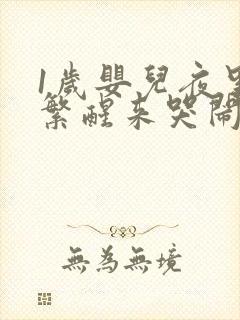 1歲嬰兒夜
繁醒來哭鬧
無為無境